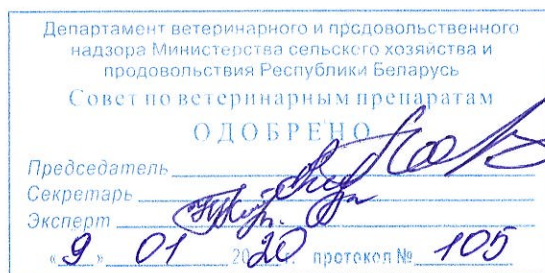 Департамент ветеринарного и продовольственного
надзора Министерства сельского хозяйства и
продовольствия Республики Беларусь
Совет по ветеринарным препаратам
ОДОБРЕНО
Председатель
Секретарь
Эксперт
« 9 » 01 2020 протокол № 105